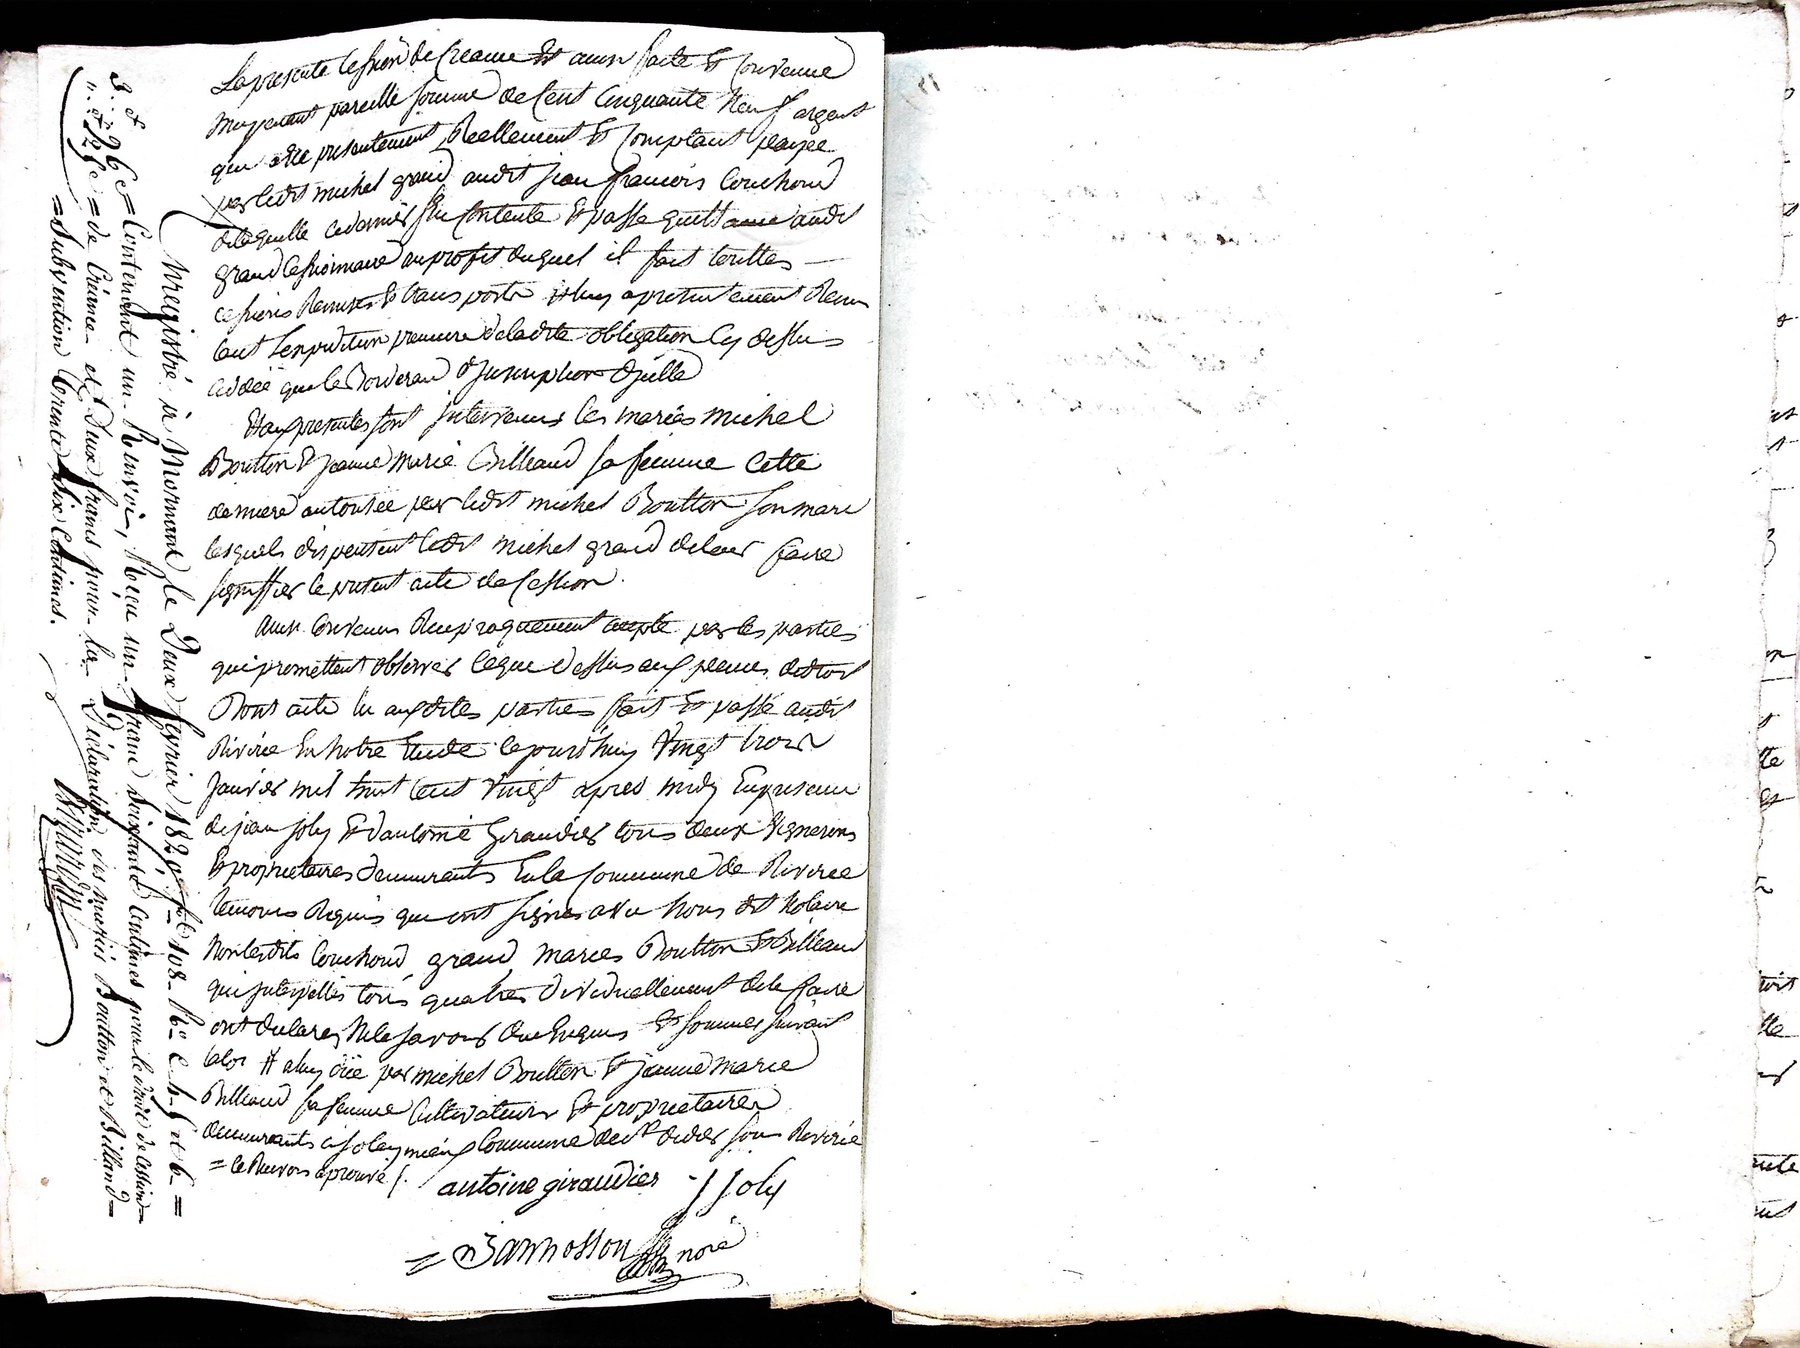 La presente cession de creance Et ainsi faite Et Convenue
moyenant pareille somme de Cent Cinquante neuf argent
que a été presentement Réellement Et Comptant payée
par ledit michel grand audit jean françois Couchoud
de laquelle ce dernier s'en contente Et passe quittance audit
grand Cessionnaire au profit duquel il fait touttes
cessions Remises Et transports Et luy a presentement Remis
tant l'expedition premiere de ladite obligation Cy dessus
cédée que le Bordereau d'Inscription d'icelle
Et aux presentes sont intervenus les mariés michel
Boutton Et jeanne marie Billeaud sa femme Cette
derniere autorisée par ledit michel Boutton son mari
lesquels dispensent ledit michel grand de leur faire
signiffier le present acte de Cession
Ainsi Convenu Reciproquement accepté par les parties
qui promettent observer Ce que dessus aux peines de droit
Dont acte lu auxdites parties fait Et passé audit
Riverie En notre Etude Cejourd'huy Vingt trois
Janvier mil huit Cent Vingt apres midy En presence
de jean joly Et d'antoine Giraudier tous deux Vignerons
Et proprietaires demeurants En la Commune de Riverie
temoins Requis qui ont signés avec Nous dit Notaire
Non lesdits Couchoud grand mariés Boutton Et Billeaud
qui interpellés tous quatre dividuellement de le faire
ont declarés Ne le savoir de ce Enquis Et sommés suivant
la loi # a luy due par michel Boutton Et jeanne marie
Billeaud sa femme Cultivateurs Et proprietaires
demeurants a soleymieux Commune de St didier sous Riverie
= le Renvoi aprouvé /.
antoine giraudier J Joly
= Jannosson nore
Enregistré à Mornant le Deux fevrier 1820, fo 108 Ro C. 4, 5 et 6 =
Contenant un Renvoi, Reçu un franc soixante centimes pour le droit de cession
de Créance et Deux francs pour la Déclaration des mariés Boutton et Billaud =
= Subvention trente six Centimes.